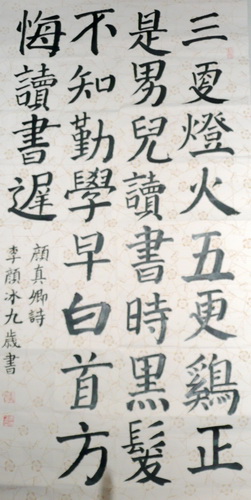 三更燈火五更鷄正
是男兒讀書時黑髮
不知勤學早白首方
悔讀書遲
顔真卿詩
李顔冰九歲書